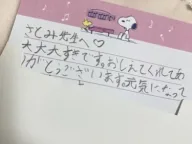 さとみ先生へ♡
大大大すきです。おしえてくれてあ
りがとうございます。元気になって